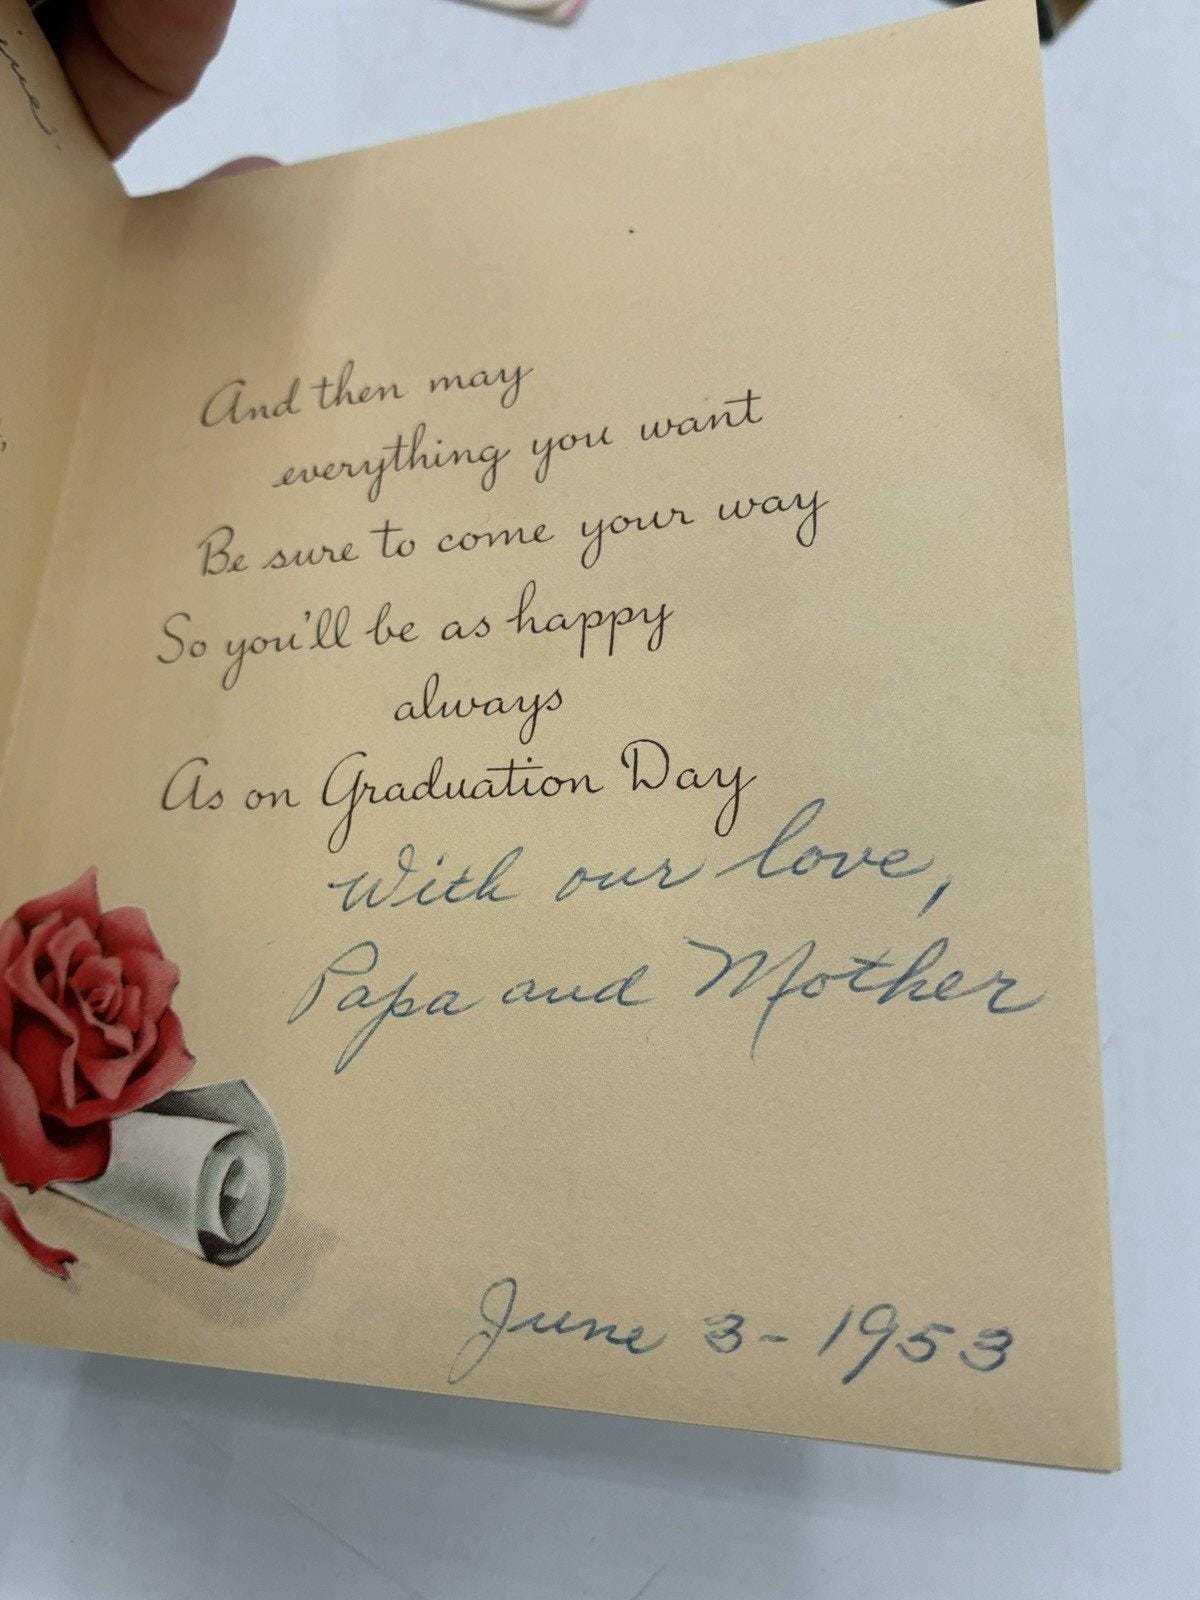 And then may
everything you want
Be sure to come your way
So you'll be as happy
always
As on Graduation Day
With our love,
Papa and Mother
June 3-1953